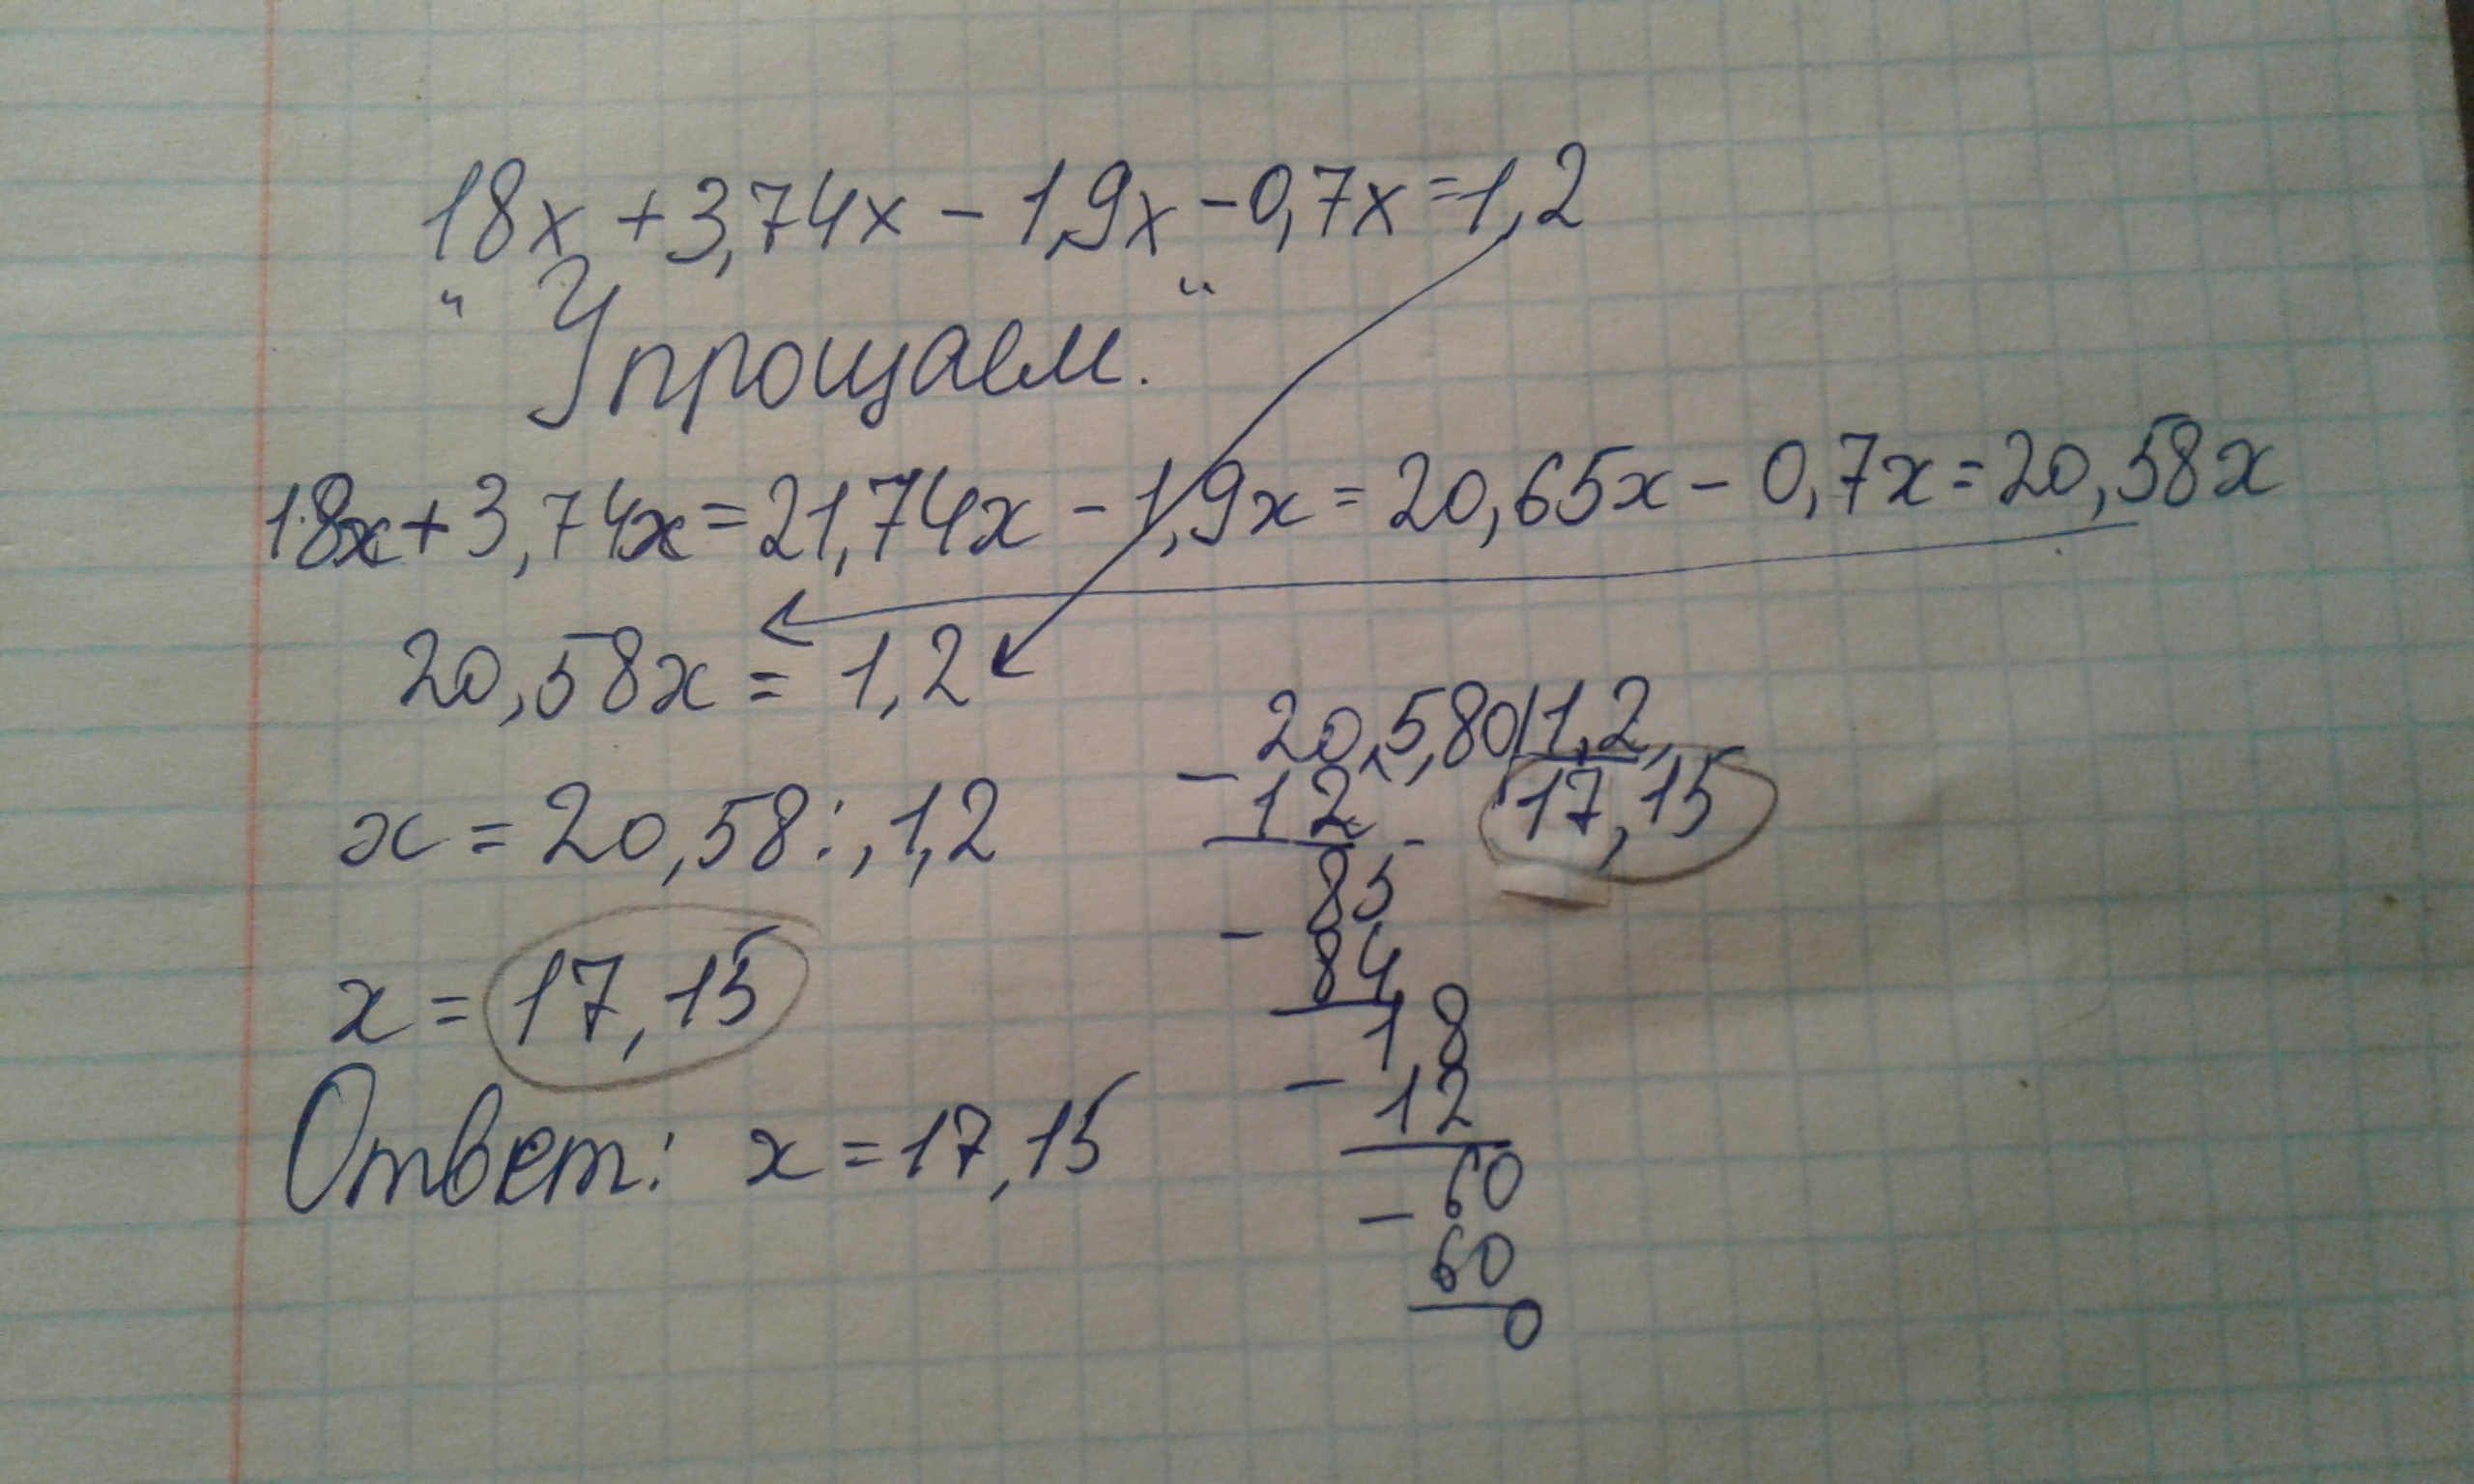 18x + 3,74x - 1,9x - 0,7x = 1,2
"Упрощаем."
18x + 3,74x = 21,74x - 1,9x = 20,65x - 0,7x = 20,58x
20,58x = 1,2
x = 20,58 : , 1,2
x = 17,15
Ответ: x = 17,15
20,5,80 | 1,2,
- 12
17,15
85
- 84
18
- 12
60
- 60
0